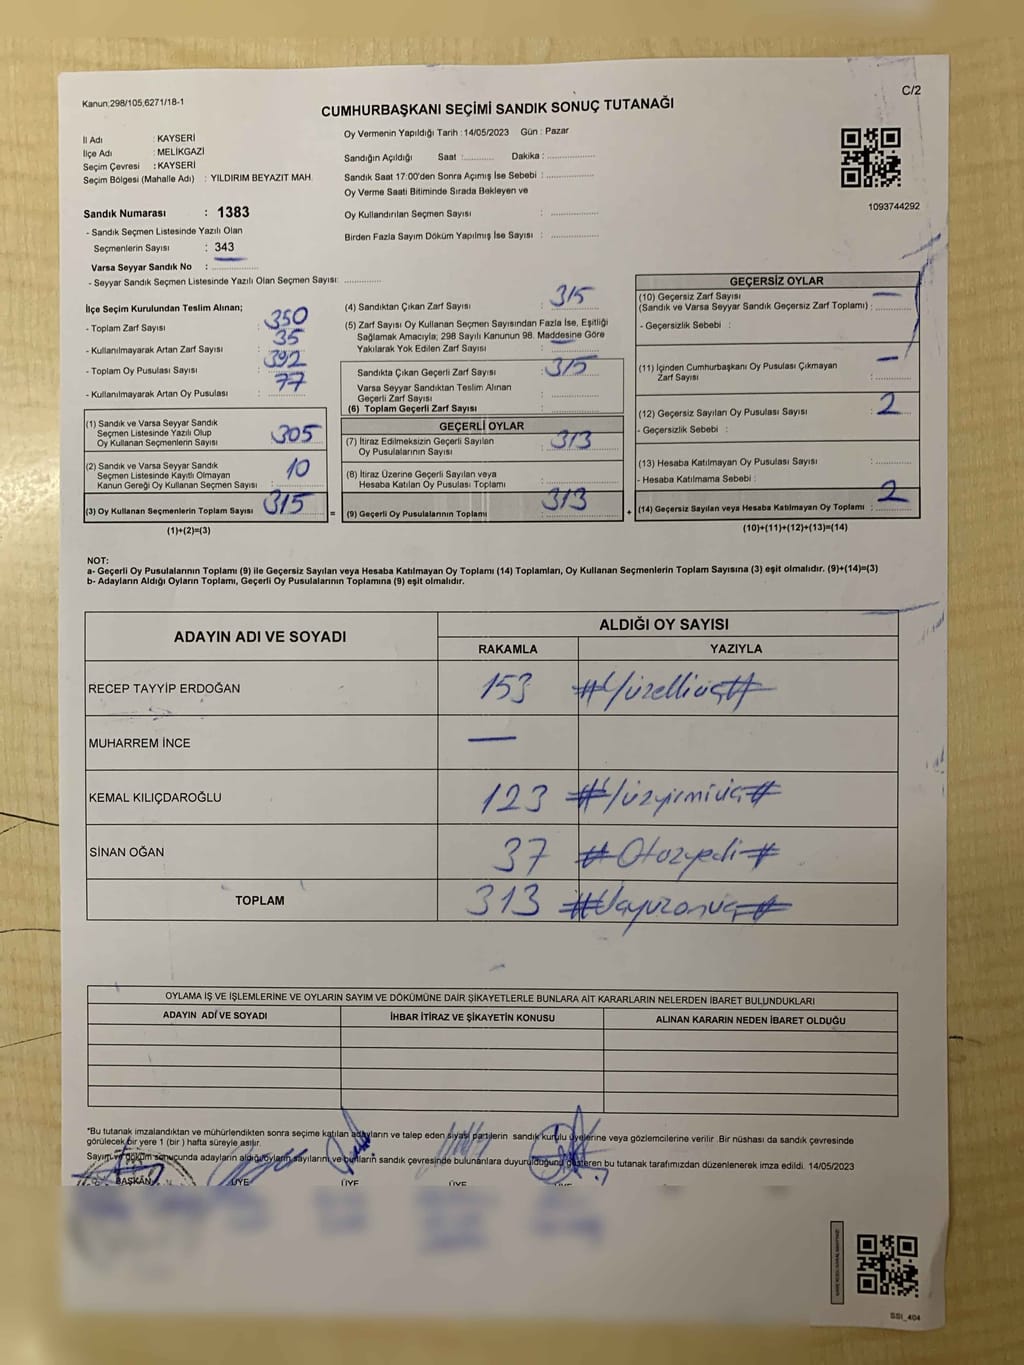 Kanun;298/105,6271/18-1
C/2
CUMHURBAŞKANI SEÇİMİ SANDIK SONUÇ TUTANAĞI
İl Adı : KAYSERİ
İlçe Adı : MELİKGAZİ
Seçim Çevresi : KAYSERİ
Seçim Bölgesi (Mahalle Adı) : YILDIRIM BEYAZIT MAH.
Sandık Numarası : 1383
- Sandık Seçmen Listesinde Yazılı Olan
Seçmenlerin Sayısı : 343
Varsa Seyyar Sandık No : ..............
- Seyyar Sandık Seçmen Listesinde Yazılı Olan Seçmen Sayısı: ..............
Oy Vermenin Yapıldığı Tarih : 14/05/2023 Gün : Pazar
Sandığın Açıldığı Saat :.......... Dakika : ..............
Sandık Saat 17:00'den Sonra Açımış İse Sebebi : ..............
Oy Verme Saati Bitiminde Sırada Bekleyen ve
Oy Kullandırılan Seçmen Sayısı : ..............
Birden Fazla Sayım Döküm Yapılmış İse Sayısı : ..............
1093744292
İlçe Seçim Kurulundan Teslim Alınan;
- Toplam Zarf Sayısı : 350
- Kullanılmayarak Artan Zarf Sayısı : 35
- Toplam Oy Pusulası Sayısı : 392
- Kullanılmayarak Artan Oy Pusulası : 77
(1) Sandık ve Varsa Seyyar Sandık
Seçmen Listesinde Yazılı Olup
Oy Kullanan Seçmenlerin Sayısı : 305
(2) Sandık ve Varsa Seyyar Sandık
Seçmen Listesinde Kayıtlı Olmayan
Kanun Gereği Oy Kullanan Seçmen Sayısı : 10
(3) Oy Kullanan Seçmenlerin Toplam Sayısı : 315
(1)+(2)=(3)
=
(4) Sandıktan Çıkan Zarf Sayısı : 315
(5) Zarf Sayısı Oy Kullanan Seçmen Sayısından Fazla İse, Eşitliği
Sağlamak Amacıyla; 298 Sayılı Kanunun 98. Maddesine Göre
Yakılarak Yok Edilen Zarf Sayısı : ..............
Sandıkta Çıkan Geçerli Zarf Sayısı : 315
Varsa Seyyar Sandıktan Teslim Alınan
Geçerli Zarf Sayısı : ..............
(6) Toplam Geçerli Zarf Sayısı : ..............
GEÇERLİ OYLAR
(7) İtiraz Edilmeksizin Geçerli Sayılan
Oy Pusulalarının Sayısı : 313
(8) İtiraz Üzerine Geçerli Sayılan veya
Hesaba Katılan Oy Pusulası Toplamı : ..............
(9) Geçerli Oy Pusulalarının Toplamı : 313
+
GEÇERSİZ OYLAR
(10) Geçersiz Zarf Sayısı
(Sandık ve Varsa Seyyar Sandık Geçersiz Zarf Toplamı) : —
- Geçersizlik Sebebi :
(11) İçinden Cumhurbaşkanı Oy Pusulası Çıkmayan
Zarf Sayısı : —
(12) Geçersiz Sayılan Oy Pusulası Sayısı : 2
- Geçersizlik Sebebi :
(13) Hesaba Katılmayan Oy Pusulası Sayısı : ..............
- Hesaba Katılmama Sebebi :
(14) Geçersiz Sayılan veya Hesaba Katılmayan Oy Toplamı : 2
(10)+(11)+(12)+(13)=(14)
NOT:
a- Geçerli Oy Pusulalarının Toplamı (9) ile Geçersiz Sayılan veya Hesaba Katılmayan Oy Toplamı (14) Toplamları, Oy Kullanan Seçmenlerin Toplam Sayısına (3) eşit olmalıdır. (9)+(14)=(3)
b- Adayların Aldığı Oyların Toplamı, Geçerli Oy Pusulalarının Toplamına (9) eşit olmalıdır.
ADAYIN ADI VE SOYADI
ALDIĞI OY SAYISI
RAKAMLA YAZIYLA
RECEP TAYYİP ERDOĞAN 153 #Yüzelliüç#
MUHARREM İNCE —
KEMAL KILIÇDAROĞLU 123 #Yüzyirmiüç#
SİNAN OĞAN 37 #Otuzyedi#
TOPLAM 313 #Üçyüzonüç#
OYLAMA İŞ VE İŞLEMLERİNE VE OYLARIN SAYIM VE DÖKÜMÜNE DAİR ŞİKAYETLERLE BUNLARA AİT KARARLARIN NELERDEN İBARET BULUNDUKLARI
ADAYIN ADI VE SOYADI İHBAR İTİRAZ VE ŞİKAYETİN KONUSU ALINAN KARARIN NEDEN İBARET OLDUĞU
*Bu tutanak imzalandıktan ve mühürlendikten sonra seçime katılan adayların ve talep eden siyasi partilerin sandık kurulu üyelerine veya gözlemcilerine verilir .Bir nüshası da sandık çevresinde
görülecek bir yere 1 (bir ) hafta süreyle asılır.
Sayım ve döküm sonucunda adayların aldığı oyların sayılarını ve bunların sandık çevresinde bulunanlara duyurulduğunu gösteren bu tutanak tarafımızdan düzenlenerek imza edildi. 14/05/2023
BAŞKAN ÜYE ÜYE ÜYE ÜYE
SSI_404